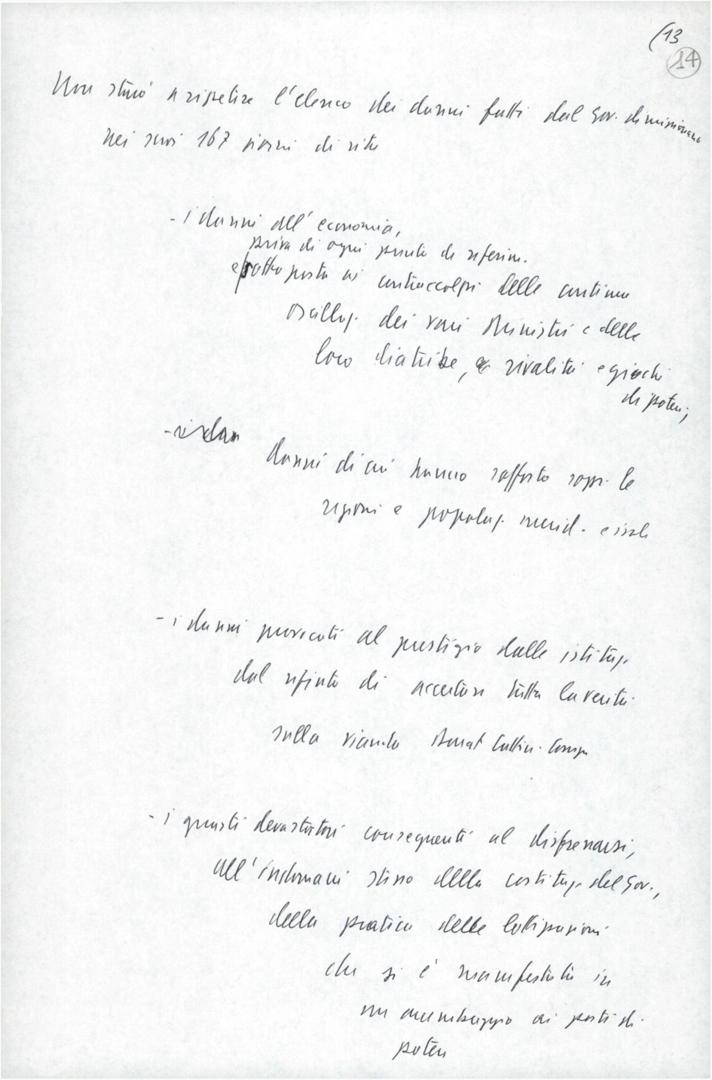 (13
14
Non starò a ripetere l'elenco dei danni fatti dal Gov. dimissionario
nei suoi 167 giorni di vita
- i danni all'economia,
priva di ogni punto di riferim.
e sottoposta ai contraccolpi delle continue
oscillaz. dei vari Ministri e delle
loro diatribe, rivalità e giochi
di potere;
- i dan
danni di cui hanno sofferto sopr. le
regioni e popolaz. merid. e isole
- i danni provocati al prestigio delle istituz.
dal rifiuto di accertare tutta la verità
sulla vicenda Donat Cattin-
- i guasti devastatori conseguenti al disfrenarsi,
all'indomani stesso della costituz. del Gov.,
della pratica delle lottizzazioni
che si è manifestata in
un arrembaggio ai posti di
potere